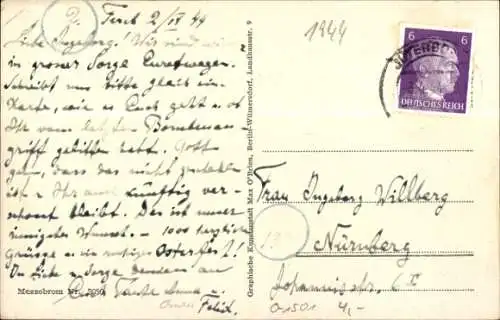 Ferch 2/IV 44
Liebe Ingeborg! Wir sind wieder
in grosser Sorge Euretwegen.
Schreibt uns bitte gleich ein
Karte, wie es Euch geht u. ob
Ihr vom letzten Bombenan-
griff gelitten habt. Gott
geb, dass das nicht
ist u. Ihr auch künftig ver-
schont bleibt. Das ist unser
innigster Wunsch. - 1000 herzliche
Grüsse u. ein ruhiges Osterfest!
In Liebe u. Sorge denken an
Dich Tante Anna u.
Onkel Felix.
Messobrom Nr.
Graphische Kunstanstalt Max O'Brien, Berlin-Wilmersdorf, Landhausstr. 9
1944
6 6
JÜTERBOG
DEUTSCHES REICH
Frau Ingeborg Willberg
Nürnberg
Johannisstr. 6 II
01501 4,-